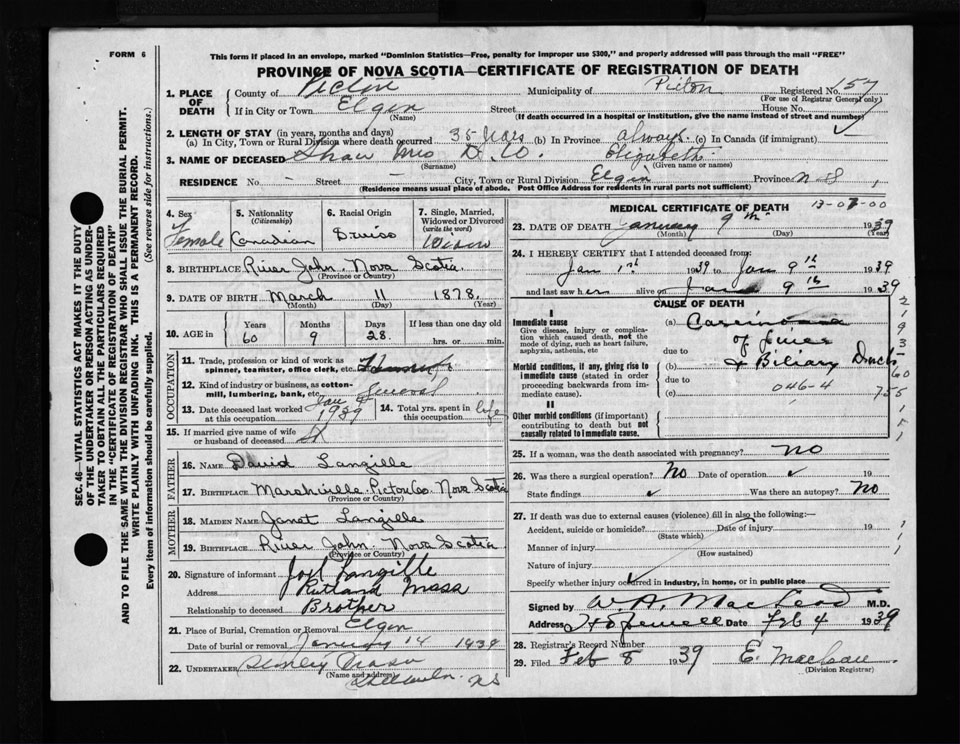 FORM 6
This form if placed in an envelope, marked "Dominion Statistics—Free, penalty for improper use $300," and properly addressed will pass through the mail "FREE"
PROVINCE OF NOVA SCOTIA—CERTIFICATE OF REGISTRATION OF DEATH
1. PLACE OF DEATH
County of Pictou Municipality of Pictou Registered No. 157
(For use of Registrar General only)
If in City or Town Elgin Street House No.
(Name) (If death occurred in a hospital or institution, give the name instead of street and number)
2. LENGTH OF STAY (in years, months and days)
(a) In City, Town or Rural Division where death occurred 35 years (b) In Province always (c) In Canada (if immigrant)
3. NAME OF DECEASED Shaw Mrs D. W. Elizabeth
(Surname) (Given name or names)
RESIDENCE No. – Street – City, Town or Rural Division Elgin Province N S
(Residence means usual place of abode. Post Office Address for residents in rural parts not sufficient)
4. Sex
Female
5. Nationality
(Citizenship)
Canadian
6. Racial Origin
7. Single, Married, Widowed or Divorced
(write the word)
Widow
8. BIRTHPLACE River John. Nova Scotia.
(Province or Country)
9. DATE OF BIRTH March 11 1878
(Month) (Day) (Year)
10. AGE in
Years Months Days If less than one day old
60 9 28. hrs. or min.
OCCUPATION
11. Trade, profession or kind of work as spinner, teamster, office clerk, etc.
12. Kind of industry or business, as cotton-mill, lumbering, bank, etc. General
13. Date deceased last worked at this occupation 1939
14. Total yrs. spent in this occupation life
15. If married give name of wife or husband of deceased
FATHER
16. NAME David Langille
17. BIRTHPLACE Marshville. Pictou Co. Nova Scotia
(Province or Country)
MOTHER
18. MAIDEN NAME Janet Langille
19. BIRTHPLACE River John. Nova Scotia
(Province or Country)
20. Signature of informant Joel Langille
Address Rutland Mass
Relationship to deceased Brother
21. Place of Burial, Cremation or Removal Elgin
Date of burial or removal January 14 1939
22. UNDERTAKER
(Name and address)
NS
MEDICAL CERTIFICATE OF DEATH
23. DATE OF DEATH January 9th 1939
(Month) (Day) (Year)
24. I HEREBY CERTIFY that I attended deceased from:
Jan 1st 1939 to Jan 9th 1939
and last saw her alive on Jan 9th 1939
CAUSE OF DEATH
I
Immediate cause
Give disease, injury or complication which caused death, not the mode of dying, such as heart failure, asphyxia, asthenia, etc
(a) Carcinoma
of Liver
due to
Morbid conditions, if any, giving rise to immediate cause (stated in order proceeding backwards from immediate cause).
(b) & Biliary Ducts
due to
046-4
(c)
II
Other morbid conditions (if important) contributing to death but not causally related to immediate cause.
25. If a woman, was the death associated with pregnancy? no
26. Was there a surgical operation? No Date of operation 19
State findings Was there an autopsy? No
27. If death was due to external causes (violence) fill in also the following:—
Accident, suicide or homicide? Date of injury 19
(State which)
Manner of injury
(How sustained)
Nature of injury
Specify whether injury occurred in industry, in home, or in public place
Signed by W. A. MacLeod M.D.
Address Hopewell Date Feb 4 1939
28. Registrar's Record Number
29. Filed Feb 8 1939 E. MacLean
(Division Registrar)
SEC. 46—VITAL STATISTICS ACT MAKES IT THE DUTY
OF THE UNDERTAKER OR PERSON ACTING AS UNDER-
TAKER TO OBTAIN ALL THE PARTICULARS REQUIRED
IN THE "CERTIFICATE OF REGISTRATION OF DEATH"
AND TO FILE THE SAME WITH THE DIVISION REGISTRAR WHO SHALL ISSUE THE BURIAL PERMIT.
WRITE PLAINLY WITH UNFADING INK. THIS IS A PERMANENT RECORD.
Every item of information should be carefully supplied. (See reverse side for instructions.)